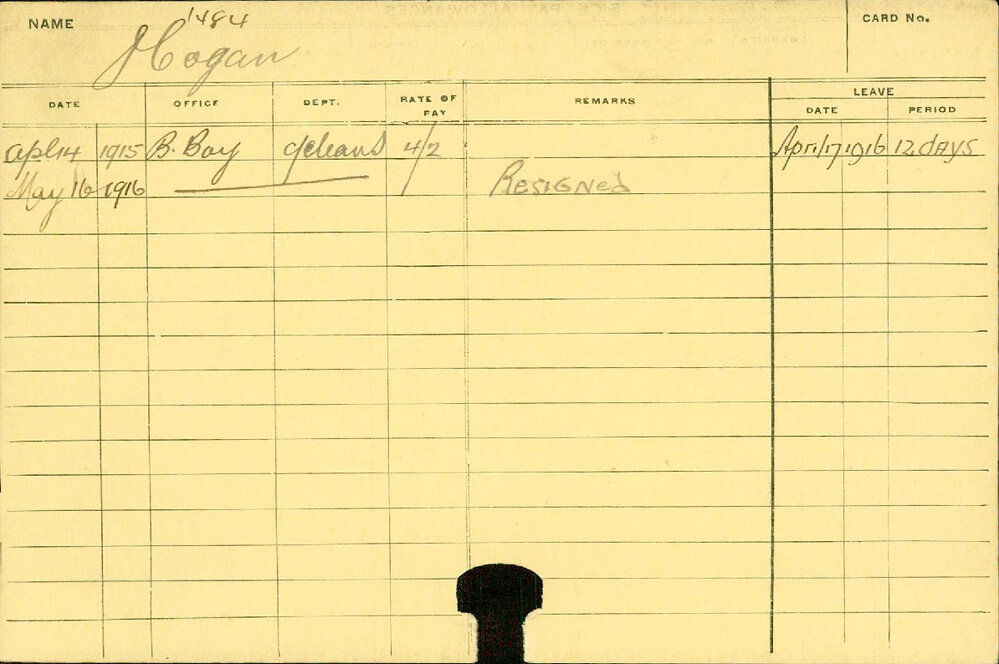 NAME 1484 CARD No.
Hogan
DATE OFFICE DEPT. RATE OF PAY REMARKS LEAVE
DATE PERIOD
Apl 14 1915 B. Bay 4/2 April 17 1916 12 days
May 16 1916 Resigned